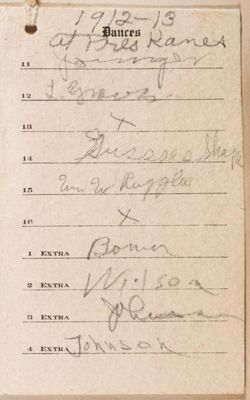 1912-13
Dances
at Pres Kanes
11
12 L Graves
13 X
14
15 Wm W Ruggles
16 X
1 Extra Bowen
2 Extra Wilson
3 Extra Johnson
4 Extra Johnson